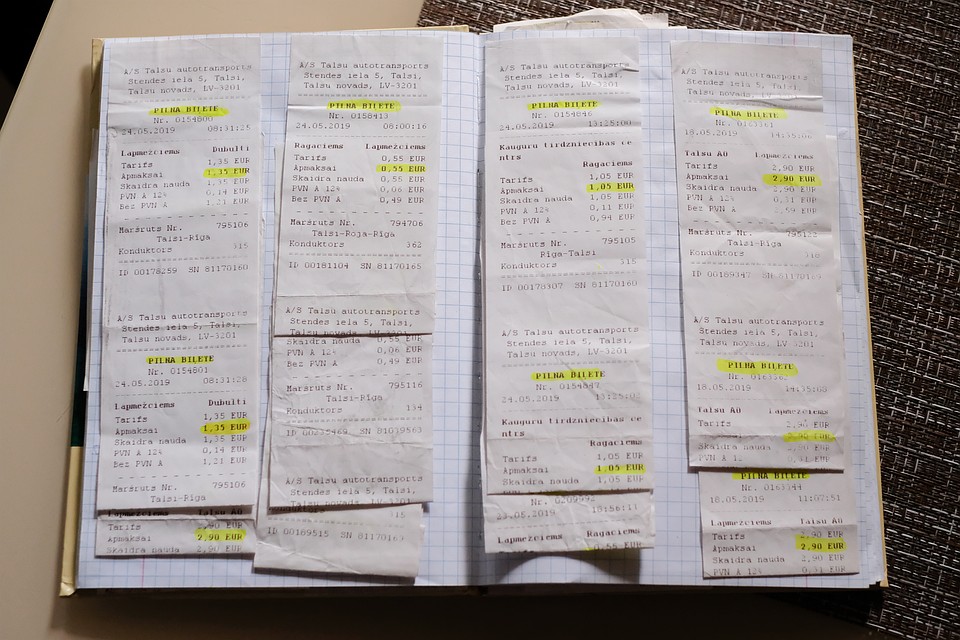 A/S Talsu autotransports
Stendes iela 5, Talsi,
Talsu novads, LV-3201
PILNA BILETE
Nr. 0154800
24.05.2019 08:31:25
Lapmežciems Dubulti
Tarifs 1,35 EUR
Apmaksai 1,35 EUR
Skaidra nauda 1,35 EUR
PVN A 12% 0,14 EUR
Bez PVN A 1,21 EUR
Maršruts Nr. 795106
Talsi-Rīga
Konduktors 315
ID 00178259 SN 81170160
A/S Talsu autotransports
Stendes iela 5, Talsi,
Talsu novads, LV-3201
PILNA BILETE
Nr. 0154801
24.05.2019 08:31:28
Lapmežciems Dubulti
Tarifs 1,35 EUR
Apmaksai 1,35 EUR
Skaidra nauda 1,35 EUR
PVN A 12% 0,14 EUR
Bez PVN A 1,21 EUR
Maršruts Nr. 795106
Talsi-Rīga
Lapmežciems Talsu AO
Tarifs 2,90 EUR
Apmaksai 2,90 EUR
Skaidra nauda 2,90 EUR
A/S Talsu autotransports
Stendes iela 5, Talsi,
Talsu novads, LV-3201
PILNA BILETE
Nr. 0158413
24.05.2019 08:00:16
Ragaciems Lapmežciems
Tarifs 0,55 EUR
Apmaksai 0,55 EUR
Skaidra nauda 0,55 EUR
PVN A 12% 0,06 EUR
Bez PVN A 0,49 EUR
Maršruts Nr. 794706
Talsi-Roja-Rīga
Konduktors 362
ID 00181104 SN 81170165
A/S Talsu autotransports
Stendes iela 5, Talsi,
Talsu novads, LV-3201
Skaidra nauda 0,55 EUR
PVN A 12% 0,06 EUR
Bez PVN A 0,49 EUR
Maršruts Nr. 795116
Talsi-Rīga
Konduktors 134
A/S Talsu autotransports
Stendes iela 5, Talsi,
Talsu novads, LV-3201
315
ID 00169515 SN 81170163
A/S Talsu autotransports
Stendes iela 5, Talsi,
Talsu novads, LV-3201
PILNA BILETE
Nr. 0154846
24.05.2019 13:25:00
Kauguru tirdzniecības ce
ntrs
Ragaciems
Tarifs 1,05 EUR
Apmaksai 1,05 EUR
Skaidra nauda 1,05 EUR
PVN A 12% 0,11 EUR
Bez PVN A 0,94 EUR
Maršruts Nr. 795105
Rīga-Talsi
Konduktors 315
ID 00178307 SN 81170160
A/S Talsu autotransports
Stendes iela 5, Talsi,
Talsu novads, LV-3201
PILNA BILETE
Nr. 0154847
24.05.2019 13:25:02
Kauguru tirdzniecības ce
ntrs
Ragaciems
Tarifs 1,05 EUR
Apmaksai 1,05 EUR
Skaidra nauda 1,05 EUR
Nr. 0209992
23.05.2019 18:56:13
Lapmežciems Ragaciems
0,55 EUR
A/S Talsu autotransports
Stendes iela 5, Talsi,
Talsu novads, LV-3201
PILNA BILETE
Nr. 0163361
18.05.2019 14:35:06
Talsu AO Lapmežciems
Tarifs 2,90 EUR
Apmaksai 2,90 EUR
Skaidra nauda 2,90 EUR
PVN A 12% 0,31 EUR
Bez PVN A 2,59 EUR
Maršruts Nr.
Talsi-Rīga
Konduktors
ID 00189347
A/S Talsu autotransports
Stendes iela 5, Talsi,
Talsu novads, LV-3201
PILNA BILETE
Nr. 0163362
18.05.2019 14:35:08
Talsu AO Lapmežciems
Tarifs 2,90 EUR
Apmaksai 2,90 EUR
Skaidra nauda 2,90 EUR
PVN A 12% 0,31 EUR
PILNA BILETE
Nr. 0163344
18.05.2019 11:07:51
Lapmežciems Talsu AO
Tarifs 2,90 EUR
Apmaksai 2,90 EUR
Skaidra nauda 2,90 EUR
PVN A 12% 0,31 EUR